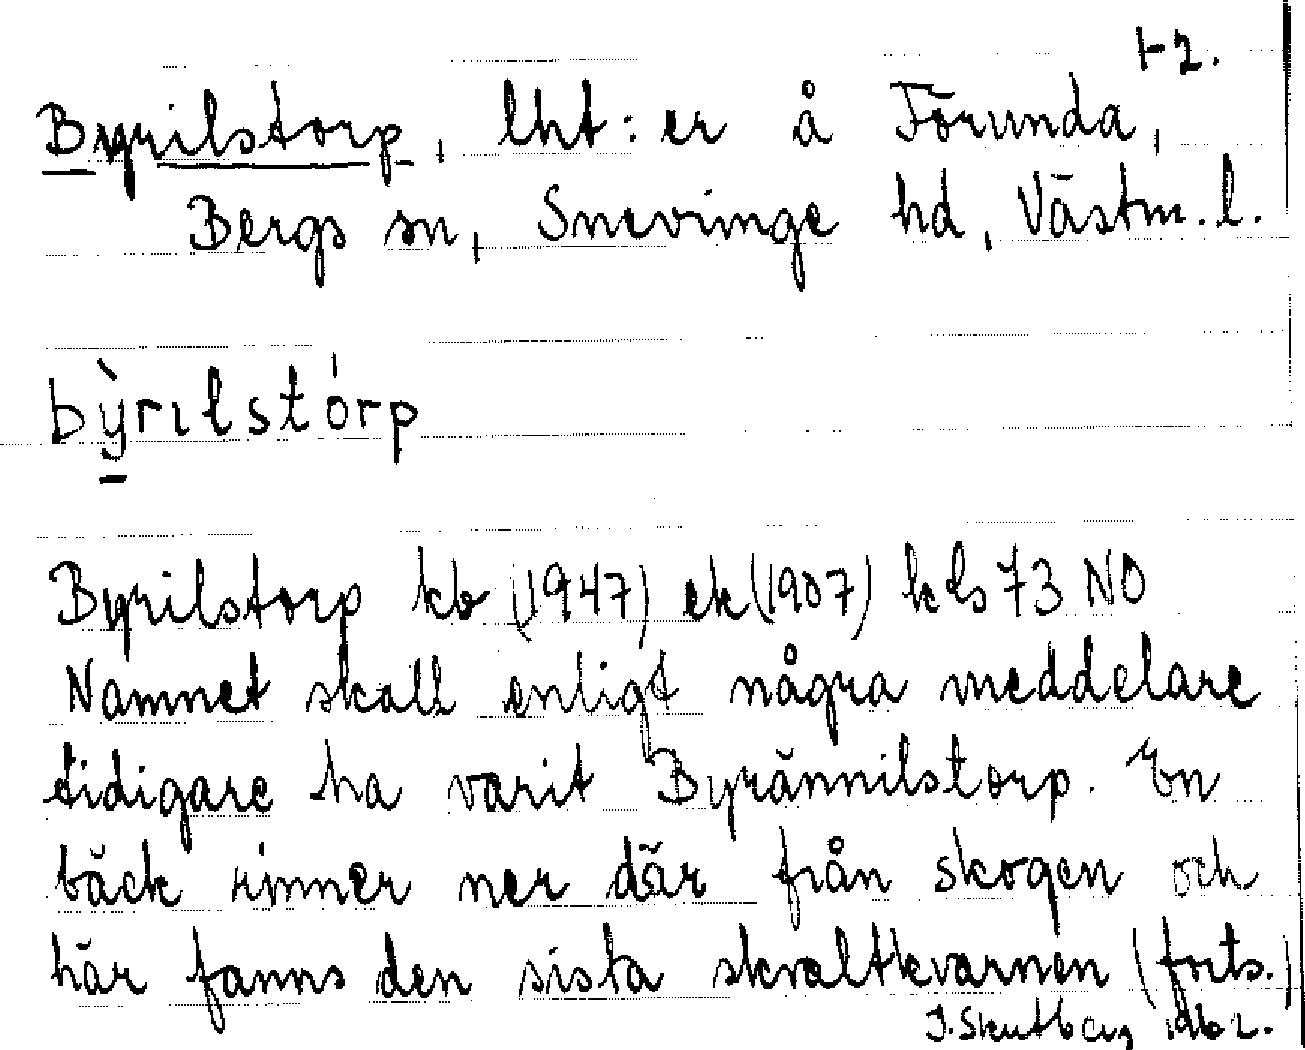 1-2.
Byrilstorp, lht:er å Forunda,
Bergs sn, Snevringe hd, Västm. l.
bỳrılstórp
Byrilstorp kb (1947) ek (1907) kbs 73 NO
Namnet skall enligt några meddelare
tidigare ha varit Byrännilstorp. En
bäck rinner ner där från skogen och
här fanns den sista skvaltkvarnen (forts.)
1962.